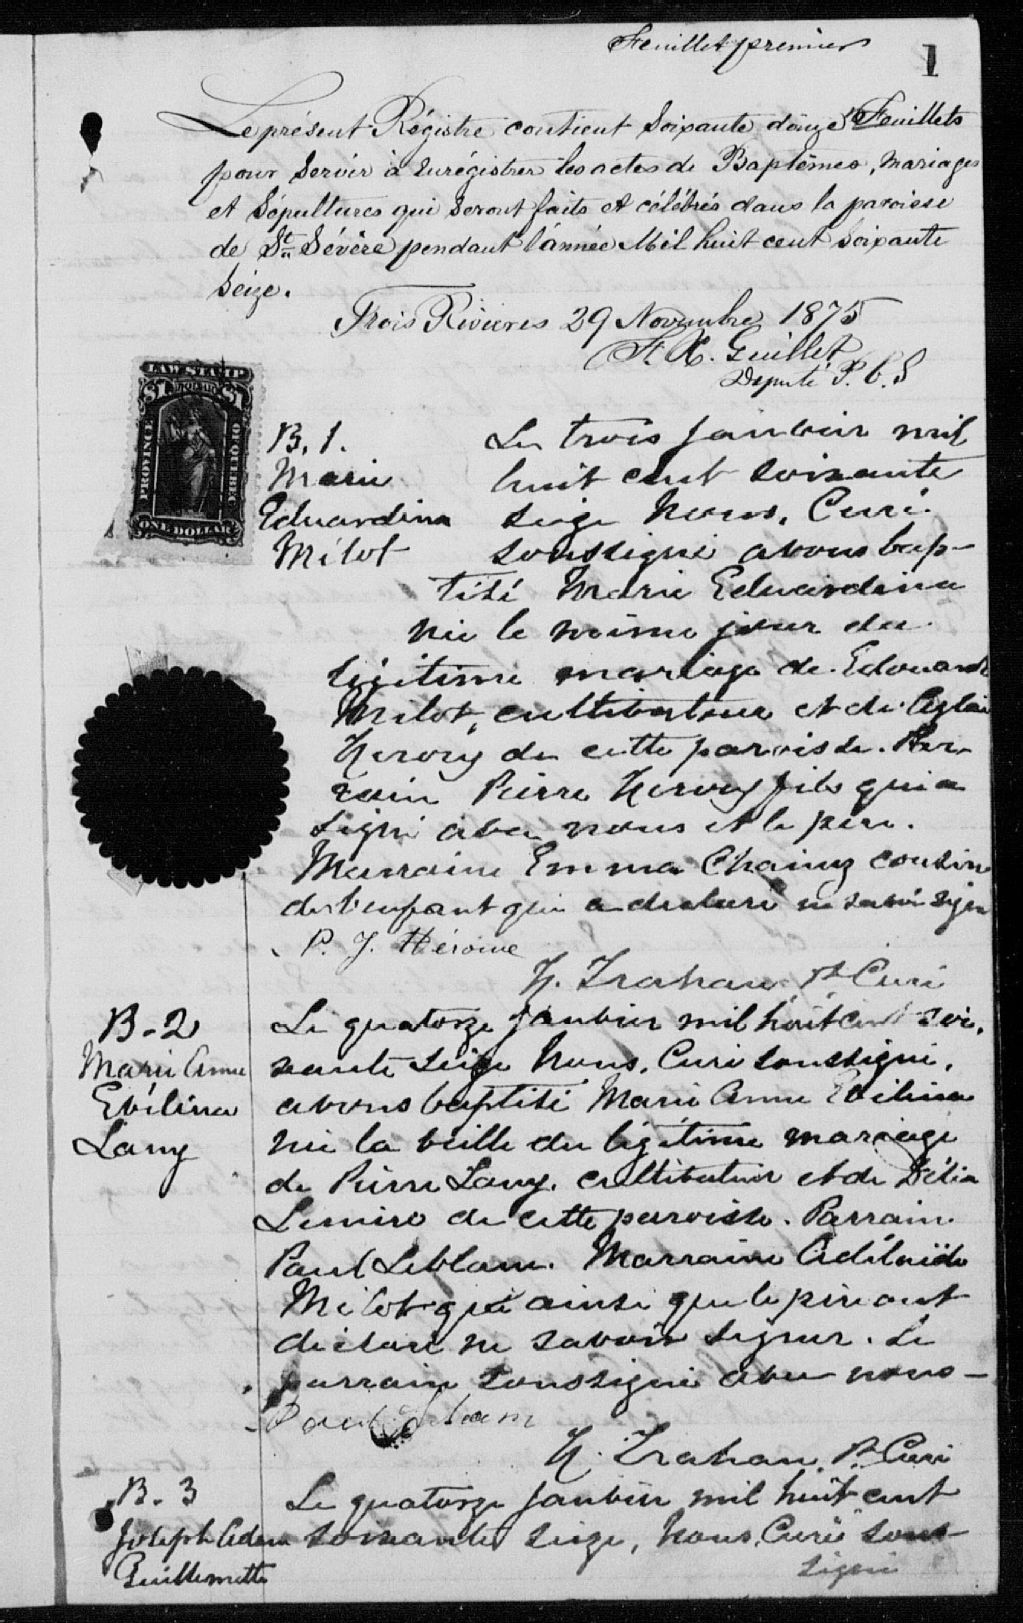 Feuillet premier
1
Le présent Régistre contient Soixante douze Feuillets
pour Servir à Enrégistrer les actes de Baptêmes, mariages
et Sépultures qui Seront faits et célébrés dans la paroisse
de Ste Sévère pendant l'année Mil huit cent Soixante
Seize.
Trois Rivières 29 Novembre 1875
F. X. Guillet
Deputé P. C. S
LAW STAMP
$1 $1
PROVINCE
OF QUEBEC
ONE DOLLAR
B. 1.
Marie
Eduardina
Milot
Le trois janvier mil
huit cent soixante
seize Nous, Curé
soussigné avons bap-
tisé Marie Eduardina
née le même jour du
légitime mariage de Edouard
Milot, cultivateur et de Aglaé
Heroux de cette paroisse. Par-
rain Pierre Heroux fils qui a
signé avec nous et le père.
Marraine Emma cousine
de l'enfant qui a déclaré ne savoir signer
P. J. Héroux
H. Trahan Ptr Curé
B. 2
Marie Anne
Evélina
Lamy
Le quatorze janvier mil huit cent soi-
xante seize Nous, Curé soussigné,
avons baptisé Marie Anne Evélina
née la veille du légitime mariage
de Pierre Lamy, cultivateur et de Délia
Lemire de cette paroisse. Parrain
Paul Leblanc. Marraine Adélaïde
Milot qui ainsi que le père ont
déclaré ne savoir signer. Le
parrain soussigné avec nous -
Paul
H. Trahan Ptr Curé
B. 3
Joseph Adem
Guillemette
Le quatorze janvier mil huit cent
soixante seize, Nous, Curé sous-
signé